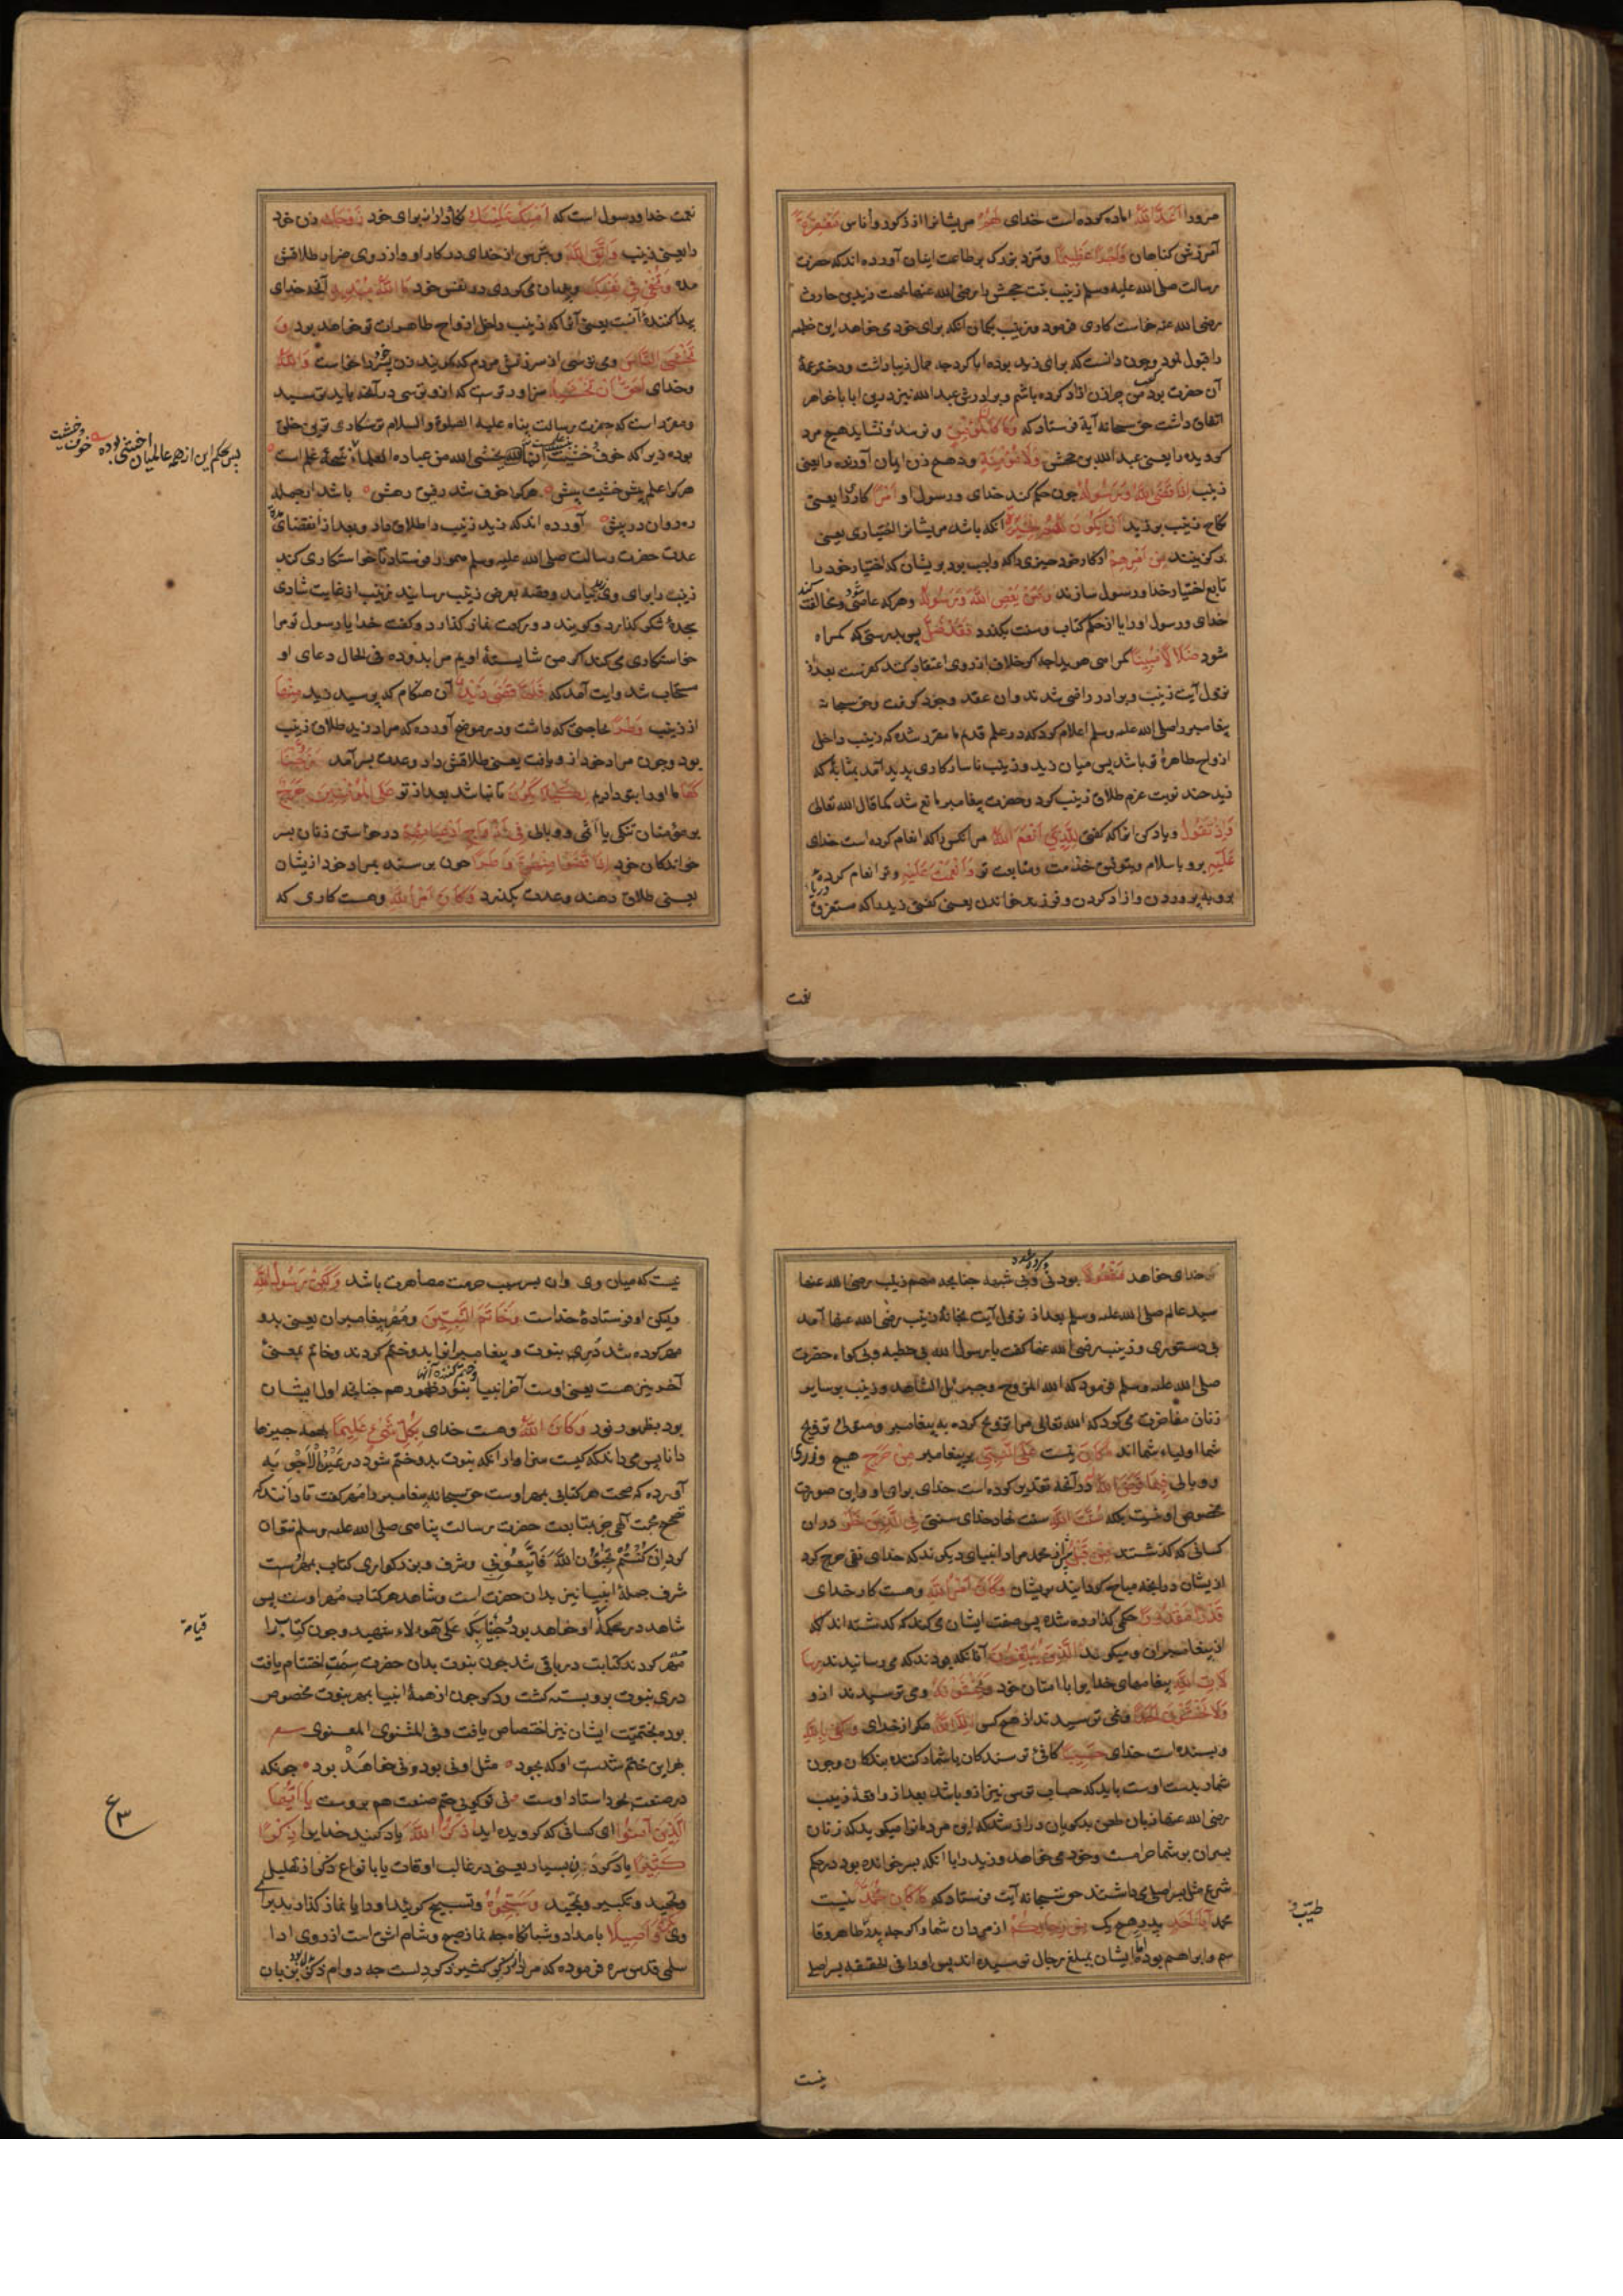 مرورا اَعَدَّ اللهُ اماده کرده است خدای لَهُمْ مریشانرا از ذکور و أناس مَغْفِرَةً
آمرزش کناهان وَاَجْرًا عَظِیمًا ومزد بزرک بر طاعت ایشان آورده اند که حضرت
رسالت صلی الله علیه وسلم زینب بنت جحش را رضی الله عنها بجهت زید بن حارث
رضی الله عنه خواستکاری فرمود وزینب بکمان آنکه برای خود می خواهد این خطبه
را قبول نمود وچون دانست که برای زید بوده ابا کرد چه جمال زیبا داشت ودختر عمهٔ
آن حضرت بود من چرا زن ازاد کرده باشم وبرادرش عبد الله نیز درین ابا با خواهر
اتفاق داشت حق سبحانه آیة فرستاد که وَمَا كَانَ لِمُؤْمِنٍ و نرسد ونشاید هیچ مرد
کرویده را یعنی عبد الله بن جحش وَلَا مُؤْمِنَةٍ ونه هیچ زن ایمان آورنده را یعنی
زینب اِذَا قَضَی اللهُ وَرَسُولُهُ چون حکم کند خدای ورسول او اَمْرًا کاری را یعنی
نکاح زینب بر زید اَنْ يَكُونَ لَهُمُ الْخِيَرَةُ آنکه باشد مریشانرا اختیاری یعنی
برکزینند مِنْ اَمْرِهِمْ از کار خود چیزی را که واجب بود بریشان که اختیار خود را
تابع اختیار خدا ورسول سازند وَمَنْ يَعْصِ اللهَ وَرَسُولَهُ وهر که عاصی شود ومخالفت کند
خدای ورسول اورا یا از حکم کتاب وسنت بکذرد فَقَدْ ضَلَّ پس بدرستی که کمراه
شود ضَلَالًا مُبِينًا کمراهی هویدا چه اکر خلاف از روی اعتقاد کند کفرست بعد از
نزول آیت زینب وبرادر راضی شدند وان عقد وجود کرفت وحق سبحانه
پیغامبر را صلی الله علیه وسلم اعلام کرد که در علم قدیم ما مقرر شده که زینب داخل
ازواج طاهرهٔ تو باشد پس میان زید وزینب ناسازکاری پدید آمد بمثابهٔ که
زید چند نوبت عزم طلاق زینب کرد وحضرت پیغامبر مانع شد کما قال الله تعالی
وَاِذْ تَقُولُ ویاد کن انرا که کفتی لِلَّذِي اَنْعَمَ اللهُ مر انکس را که انعام کرده است خدای
عَلَيْهِ برو باسلام وبتوفیق خدمت ومتابعت تو وَاَنْعَمْتَ عَلَيْهِ وتو انعام کردهٔ
برو به پروردن وازاد کردن وفرزند خواندن یعنی کفتی زید را که مستغرق دریای
نعمت
نعمت خدا ورسول است که اَمْسِكْ عَلَيْكَ نکاه دار از برای خود زَوْجَكَ زن خود
را یعنی زینب وَاتَّقِ اللهَ وبترس از خدای در کار او واز روی ضرار طلاقش
مده وَتُخْفِي فِي نَفْسِكَ وپنهان می کردی در نفس خود مَا اللهُ مُبْدِيهِ آنچه خدای
پیدا کنندهٔ آنست یعنی آنرا که زینب داخل ازواج طاهرات تو خواهد بود وَ
تَخْشَى النَّاسَ ومی ترسی از سرزنش مردم که کویند زن پسر خود را خواست وَاللهُ
وخدای اَحَقُّ اَنْ تَخْشٰيهُ سزاوارترست که ازو بترسی در آنچه باید ترسید
ومقررست که حضرت رسالت پناه علیه الصلوة والسلام ترسکاری ترین خلق
بوده زیرا که خوف وخشیت نتیجهٔ علمست انما یخشی الله من عباده العلماء نتیجهٔ علم است
پس بحکم این از همه عالمیان اخشی بوده خوف وخشیت
هر کرا علم بیش خشیت بیش هر کرا خوف شد رفیق رهش باشد از جمله
ره روان در پیش آورده اند که زید زینب را طلاق داد وبعد از انقضای مدت
عدت حضرت رسالت صلی الله علیه وسلم همورا فرستاد تا خواستکاری کند
زینب را برای وی زید بیامد وقصه بعرض زینب رسانید زینب از غایت شادی
سجدهٔ شکر کذارد وکویند دو رکعت نماز کذارد وکفت خدایا رسول تو مرا
خواستکاری می کند اکر من شایستهٔ اویم مرا بدو ده فی الحال دعای او
مستجاب شد وایت آمد که فَلَمَّا قَضٰى زَيْدٌ آن هنکام که برسید زید مِنْهَا
از زینب وَطَرًا بحاجتی که داشت ودر موضح آورده که مراد زید طلاق زینب
بود وچون مراد خود ازو یافت یعنی طلاقش داد وعدت بسر آمد زَوَّجْنَا
كَهَا ما اورا بتو دادیم لِكَيْلَا يَكُونَ تا نباشد بعد از تو عَلَى الْمُؤْمِنِينَ حَرَجٌ
بر مؤمنان تنکی یا اثمی ووبالی فِي اَزْوَاجِ اَدْعِيَائِهِمْ در خواستن زنان پسر
خواندکان خود اِذَا قَضَوْا مِنْهُنَّ وَطَرًا چون برسند بمراد خود ازیشان
یعنی طلاق دهند وعدت بکذرد وَكَانَ اَمْرُ اللهِ وهست کاری که
خدای خواهد مَفْعُولًا بودنی وبی شبهه چنانچه مهم زینب رضی الله عنها
سید عالم صلی الله علیه وسلم بعد از نزول آیت بخانهٔ زینب رضی الله عنها آمد
بی دستوری وزینب رضی الله عنها کفت یا رسول الله بی خطبه وبی کواه حضرت
صلی الله علیه وسلم فرمود که الله المزوج وجبرئیل الشاهد وزینب بر سایر
زنان مفاخرت می کرد که الله تعالی مرا تزویج کرده به پیغامبر ومتولی تزویج
شما اولیاء شما اند مَا كَانَ نیست عَلَى النَّبِيِّ بر پیغامبر مِنْ حَرَجٍ هیچ وزری
ووبالی فِيمَا فَرَضَ اللهُ لَهُ در آنچه تقدیر کرده است خدای برای او واین صورت
مخصوص او نیست بلکه سُنَّةَ اللهِ سنت نهاد خدای سنتی فِي الَّذِينَ خَلَوْا در ان
کسانی که کذشتند مِنْ قَبْلُ پیش از محمد مراد انبیای دیکرند که خدای نفی حرج کرد
ازیشان در انچه مباح کردانید بریشان وَكَانَ اَمْرُ اللهِ وهست کار خدای
قَدَرًا مَقْدُورًا حکمی کذارده شده پس صفت ایشان می کند که کذشته اند
از پیغامبران ومیکوید الَّذِينَ يُبَلِّغُونَ آنانکه بودند که می رسانیدند رِسَا
لَاتِ اللهِ پیغامهای خدا یرا با امتان خود وَيَخْشَوْنَهُ ومی ترسیدند ازو
وَلَا يَخْشَوْنَ اَحَدًا ونمی ترسیدند از هیچ کس اِلَّا اللهَ مکر از خدای وَكَفٰى بِاللهِ
وبسنده است خدای حَسِيبًا کافی ترسندکان یا شمار کننده بندکان وچون
شمار بدست اوست باید که حساب ترسی نیز ازو باشد بعد از واقعهٔ زینب
رضی الله عنها زبان طعن بدکویان دراز شد که این مرد مارا میکوید که زنان
پسران بر شما حرامست وخود می خواهد وزید را با آنکه پسر خوانده بود در حکم
شرع مثل پسر اصلی می داشتند حق سبحانه آیت فرستاد که مَا كَانَ مُحَمَّدٌ نیست
محمد اَبَا اَحَدٍ پدر هیچ یک مِنْ رِجَالِكُمْ از مردان شما واکر چه پدر طاهر وقا
طیب و
سم وابراهیم بود اما ایشان بمبلغ رجال نرسیده اند پس اورا فی الحقیقه پسر اصلی
نیست
نیست که میان وی وان پسر سبب حرمت مصاهرت باشد وَلٰكِنْ رَسُولَ اللهِ
ولیکن او فرستادهٔ خداست وَخَاتَمَ النَّبِيِّينَ ومهر پیغامبران یعنی بدو
مهر کرده شد در بنوت وپیغامبرانرا بدو ختم کردند وخاتم بمعنیٔ
آخرین هست یعنی اوست آخر انبیا بنور ظهور هم چنانچه اول ایشان
بود بظهور نور وَكَانَ اللهُ وهست خدای بِكُلِّ شَيْءٍ عَلِيمًا بهمه چیزها
دانا پس می داند که کیست سزاوار انکه بنوت بدو ختم شود در عَيْنُ الْاَجْوِبَه
آورده که صحت هر کتابی بمهر اوست حق سبحانه پیغامبر را مهر کفت تا دانند که
تصحیح محبت آلهی جز بمتابعت حضرت رسالت پناهی صلی الله علیه وسلم نتوان
کرد اِنْ كُنْتُمْ تُحِبُّونَ اللهَ فَاتَّبِعُونِي وشرف وبزرکواری کتاب بمهرست
شرف جملهٔ انبیا نیز بدان حضرت است وشاهد هر کتاب مهر اوست پس
شاهد در محکمهٔ او خواهد بود وَجِئْنَا بِكَ عَلٰى هٰؤُلَاءِ شهید وچون کتاب را
قیامة
مهر کردند کتابت در باقی شد چون بنوت بدان حضرت سِمَتِ اختتام یافت
در بنوت برو بسته کشت ودکر چون از همهٔ انبیا بمهر بنوت مخصوص
بود بختمیّت ایشان نیز اختصاص یافت وفی المثنوی المعنوی
بهر این ختم شدست او که بجود مثل او نی بود ونی خواهند بود چونکه
در صنعت برد استاد دست نی تو کویی ختم صنعت هم بروست يَا اَيُّهَا
الَّذِينَ اٰمَنُوا ای کسانی که کرویده اید اذْكُرُوا اللهَ یاد کنید خدایرا ذِكْرًا
ع ٣
كَثِيرًا یاد کردن بسیار یعنی در غالب اوقات یا بانواع ذکر از تهلیل
وتحمید وتکبیر وتمجید وَسَبِّحُوهُ وتسبیح کویید اورا یا نماز کذارید برای
وی بُكْرَةً وَاَصِيلًا بامداد وشبانکاه چه نماز صبح وشام اشق است از روی ادا
سلمی قدس سره فرموده که مراد از ذکر کثیر ذکر دلست چه دوام ذکر بزبان